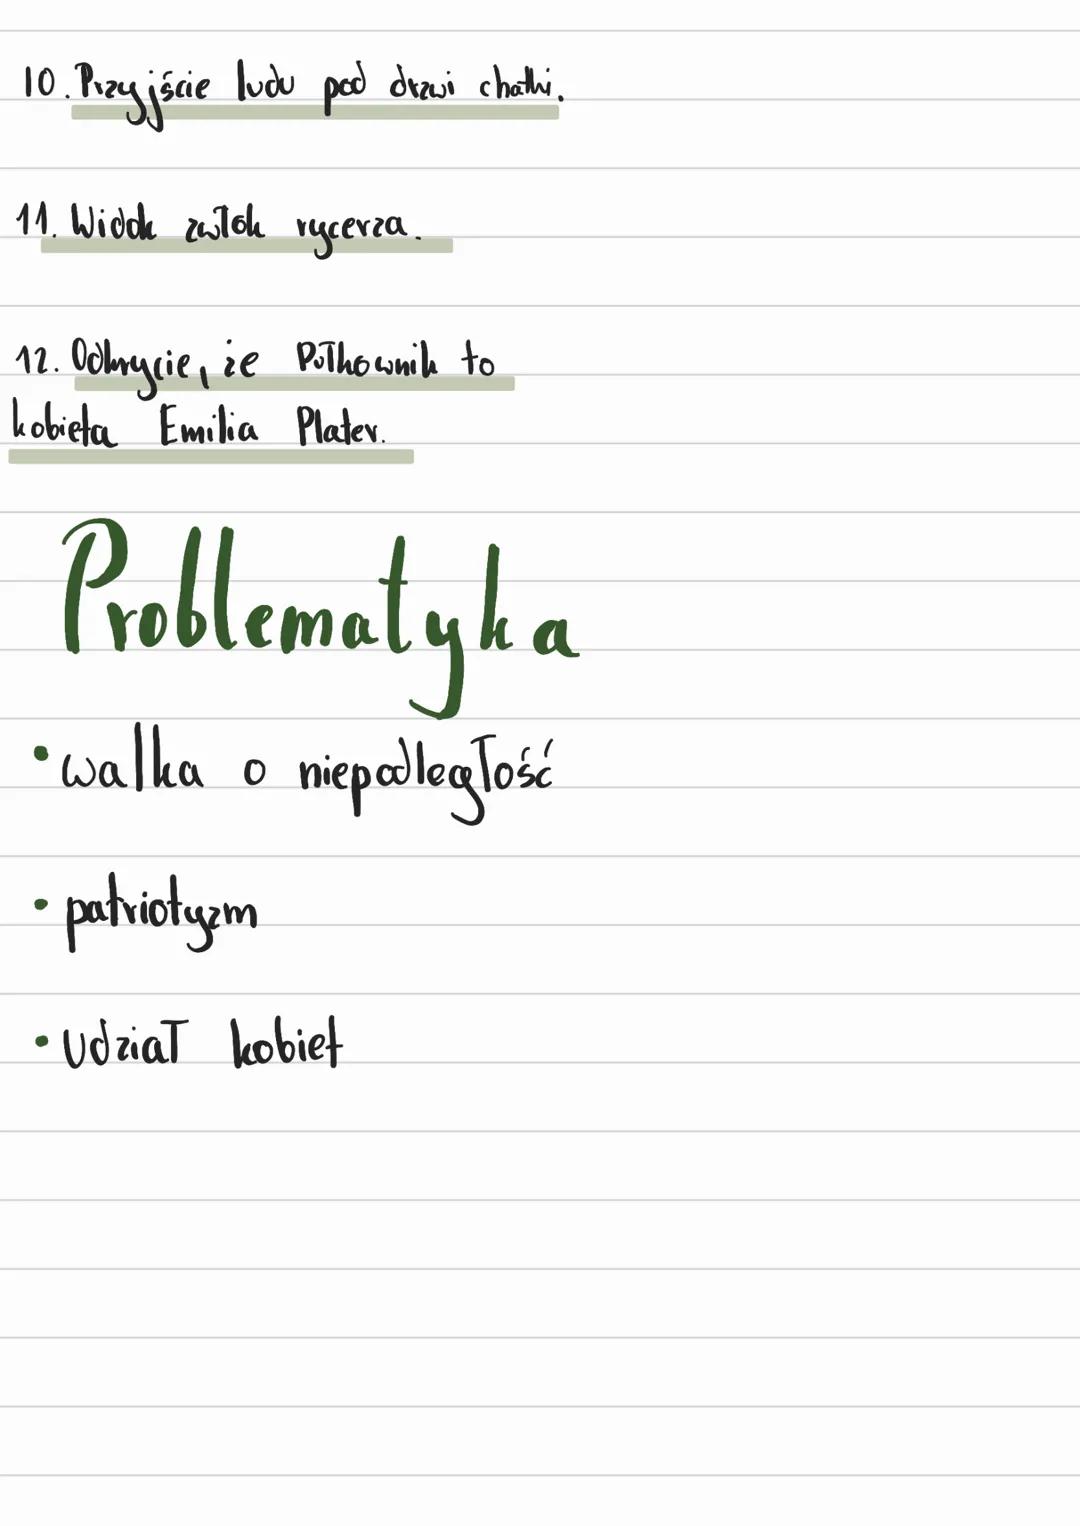 10. Przyjście ludu pod drzwi chatki.
11. Widok zwłok rycerza.
12. Odkrycie, że Pułkownik to
kobieta Emilia Plater.
Problematyka
• walka o niepodległość
• patriotyzm
• Udział kobiet